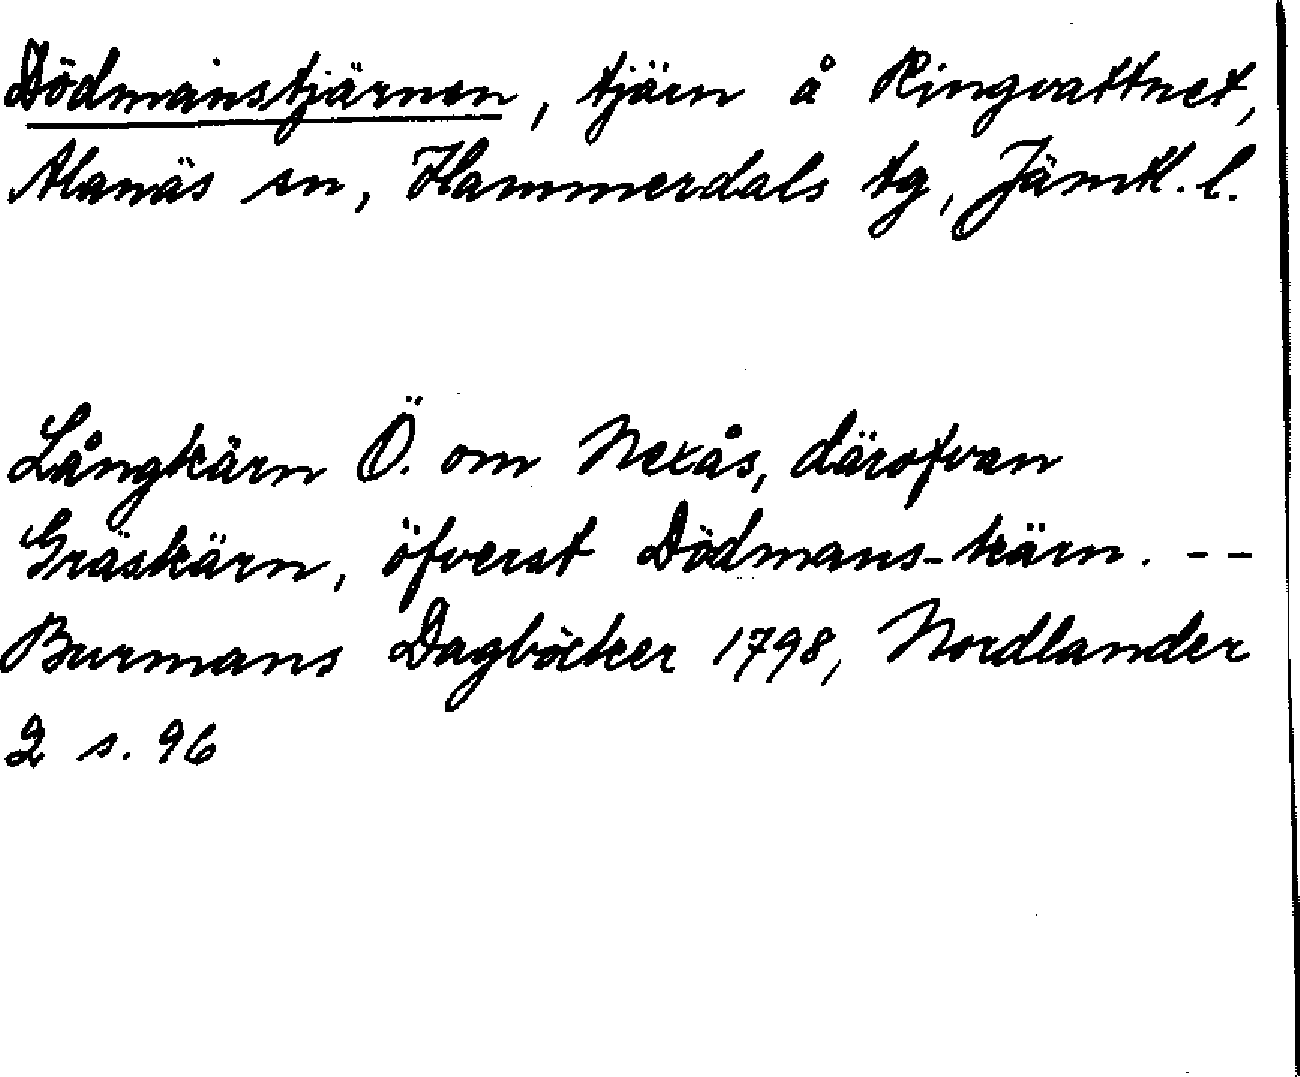 Dödmanstjärnen, tjärn å Ringvattnet,
Alanäs sn, Hammerdals tg, Jämtl. l.
Långkärn Ö. om Nexås, därofvan
Gräskärn, öfverst Dödmans-kärn. --
Burmans Dagböcker 1798, Nordlander
2 s. 96